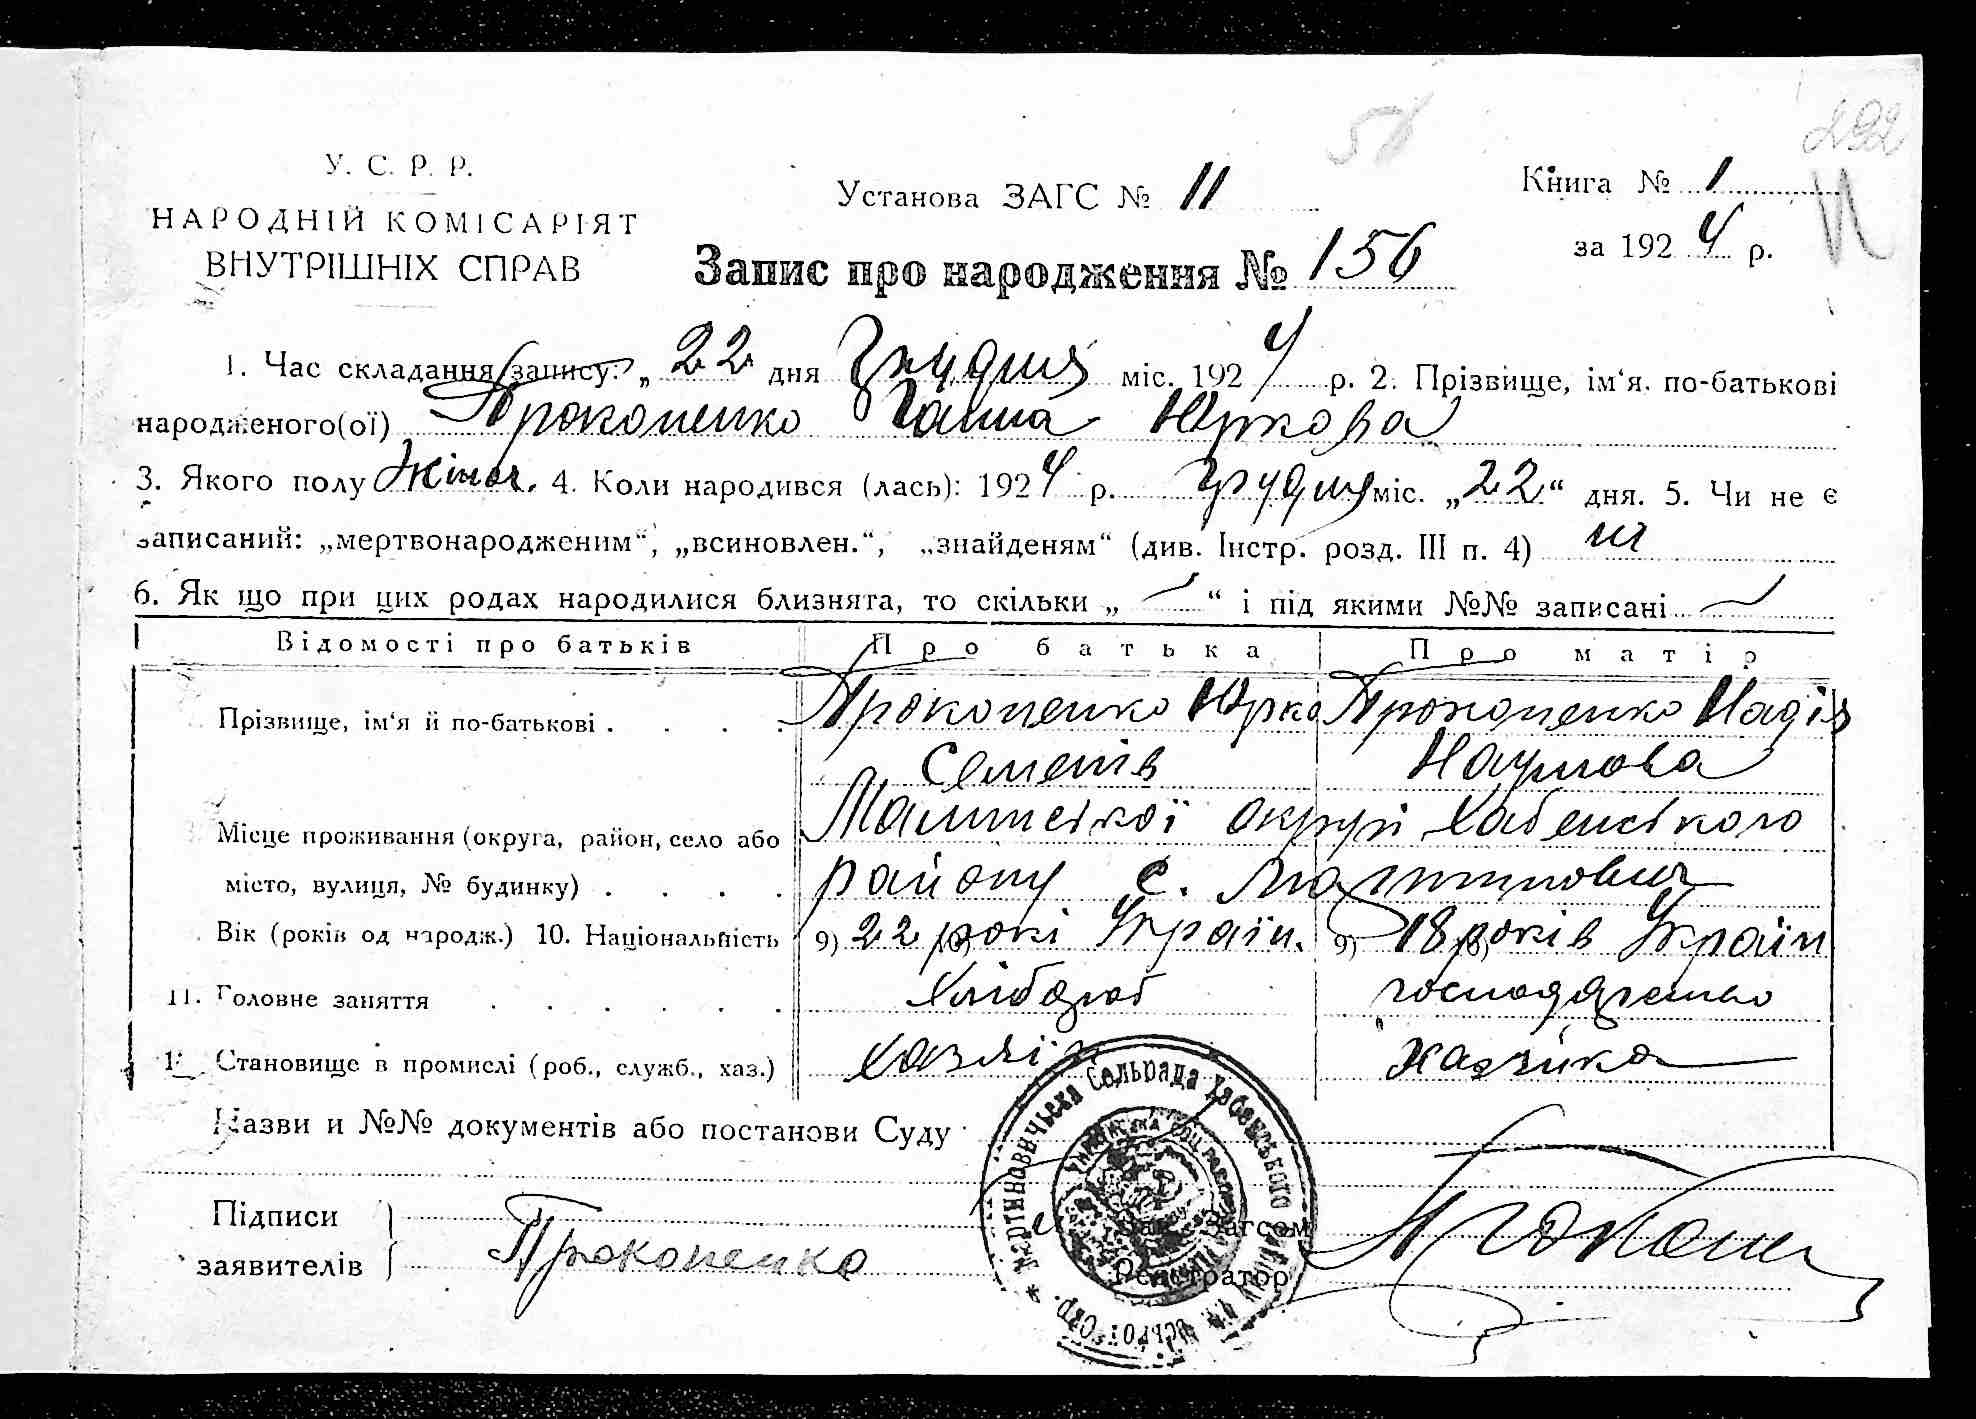 292
56
У. С. Р. Р.
НАРОДНІЙ КОМІСАРІЯТ
ВНУТРІШНІХ СПРАВ
Установа ЗАГС № 11
Книга № 1
за 1924 р.
Запис про народження № 156
1. Час складання запису: „22 дня Грудня міс. 1924 р. 2. Прізвище, ім‘я, по-батькові
народженого(ої) Прокопенко Ганна Юркова
3. Якого полу жіноч. 4. Коли народився (лась): 1924 р. Грудня міс. „22“ дня. 5. Чи не є
записаний: „мертвонародженим“, „всиновлен.“, „знайденям“ (див. Інстр. розд. III п. 4) ні
6. Як що при цих родах народилися близнята, то скільки „ — “ і під якими №№ записані —
Відомості про батьків Про батька Про матір
Прізвище, ім‘я й по-батькові . . . . Прокопенко Юрко Прокопенко Надія
Семенів Наумова
Місце проживання (округа, район, село або Малинської округи Хабенського
місто, вулиця, № будинку) . . . . району с. Мартинович
Вік (років од народж.) 10. Національність 9) 22 рокі Україн. 9) 18 років Україн
11. Головне заняття . . . . . . Хлібороб
12. Становище в промислі (роб., служб., хаз.) хазяїн хазяйка
Назви и №№ документів або постанови Суду
Підписи
заявителів
Прокопенко
Зав. Загсом
Реєстратор
Мартиновичьска Сельрада Хабенського